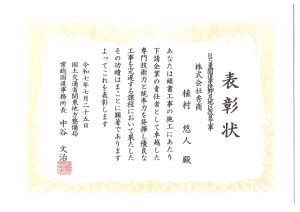 表彰状
株式会社秀商
植村 悠人 殿
あなたは頭書工事の施工にあたり
下請企業の責任者として卓越した
専門技術力と統率力を発揮し優良な
工事を完遂する課程において果たした
その功績はまことに顕著であります
よってこれを表彰します
令和七年七月二十五日
国土交通省関東地方整備局
常総国道事務所長 中谷 文治